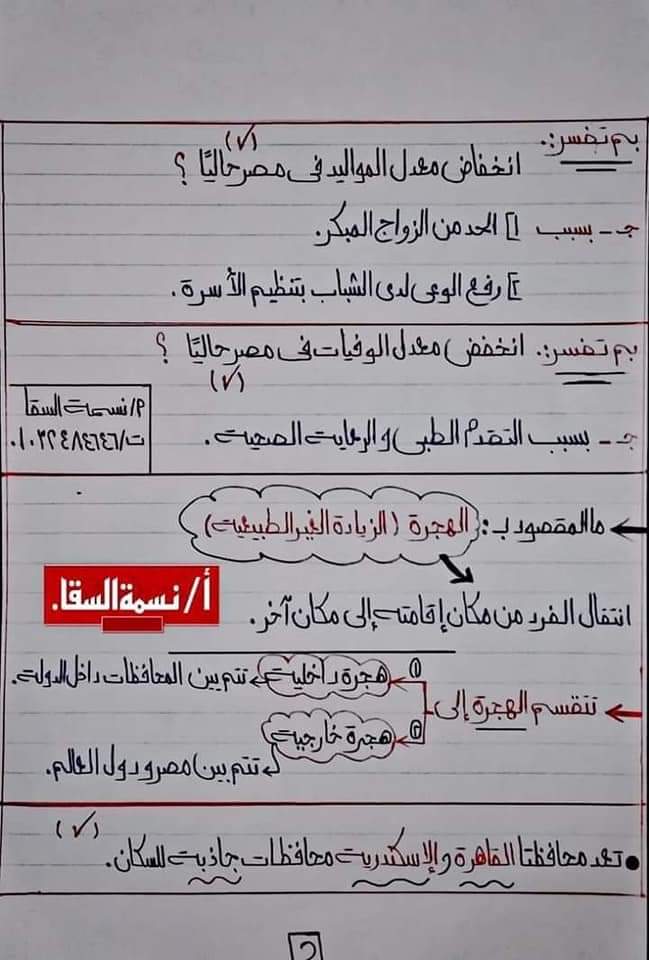 بم تفسر:.
(✓)
انخفاض معدل المواليد فى مصر حاليًا ؟
جـ - بسبب 1] الحد من الزواج المبكر.
2] رفع الوعى لدى الشباب بتنظيم الأسرة.
بم تفسر:. انخفض معدل الوفيات فى مصر حاليًا ؟
(✓)
جـ - بسبب التقدم الطبى والرعاية الصحية.
م/ نسمة السقا
ت/ ٠١٠٣٢٤٨٤٦٤٦
ما المقصود بـ: الهجرة (الزيادة الغير الطبيعية)
أ/ نسمة السقا.
انتقال الفرد من مكان إقامته إلى مكان آخر.
تنقسم الهجرة إلى
① هجرة داخلية تتم بين المحافظات داخل الدولة.
② هجرة خارجية
تتم بين مصر ودول العالم.
(✓)
• تعد محافظتا القاهرة والإسكندرية محافظات جاذبة للسكان.
2